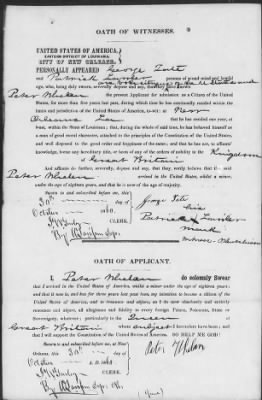 OATH OF WITNESSES.
UNITED STATES OF AMERICA,
EASTERN DISTRICT OF LOUISIANA.
CITY OF NEW ORLEANS.
PERSONALLY APPEARED George
Patrick persons of sound mind and lawful
age, who, being duly sworn, severally depose and say, they have known
Peter Whelan the present Applicant for admission as a Citizen of the United
States, for more than five years last past, during which time he has continually resided within the
limits and jurisdiction of the United States of America, to-wit: at New
Orleans La that he has resided one year, at
least, within the State of Louisiana; that, during the whole of said time, he has behaved himself as
a man of good moral character, attached to the principles of the Constitution of the United States,
and well disposed to the good order and happiness of the same; that he has, to affiants'
knowledge, borne any hereditary title, or been of any of the orders of nobility in the Kingdom
of Great Britain
And affiants do further, severally, depose and say, that they verily believe that the said
Peter Whelan arrived in the United States, whilst a minor,
under the age of eighteen years, and that he is now of the age to be admitted.
Sworn to and subscribed before me, this
30th day of
October 1860
CLERK.
George
his
Patrick
mark
OATH OF APPLICANT.
I, Peter Whelan do solemnly Swear
that I arrived in the United States of America, while a minor under the age of eighteen years;
and that it now is, and has for three years last past been my intention to become a citizen of the
United States of America, and to renounce and abjure, as I do now absolutely and entirely
renounce and abjure, all allegiance and fidelity to every foreign Prince, Potentate, State or
Sovereignty, whatever; particularly to the Queen of
Great Britain whose subject I heretofore have been; and
that I will support the Constitution of the United States of America. SO HELP ME GOD!
Sworn to and subscribed before me, at New
Orleans, this 30th day of
October A. D. 1860
CLERK.
Peter Whelan